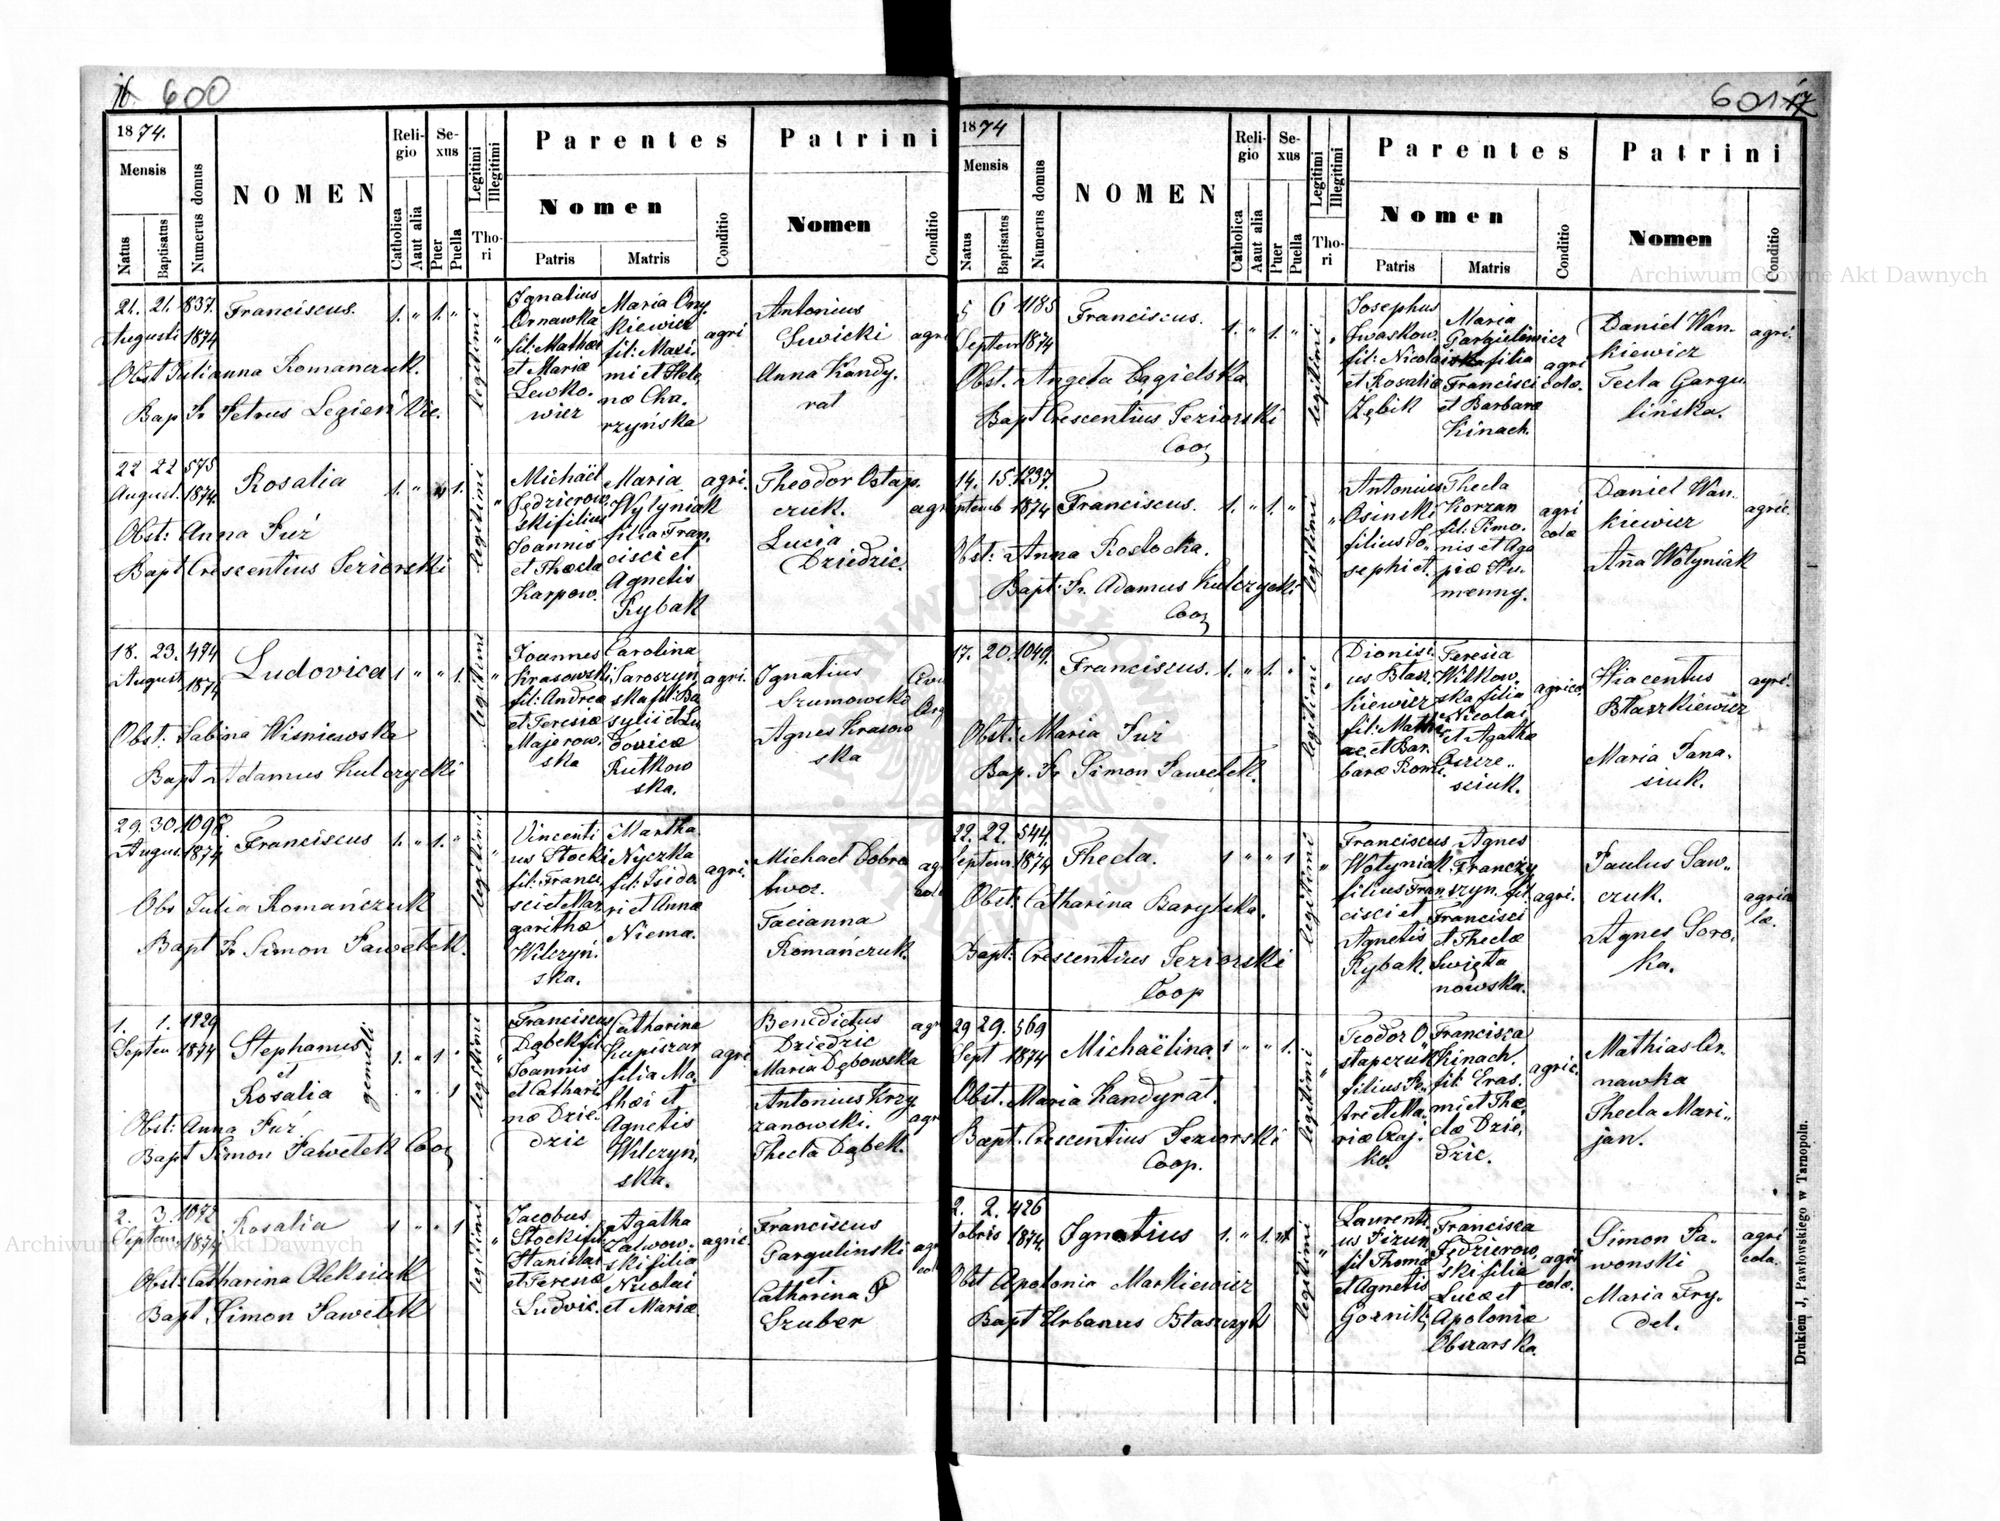 600
1874.
Mensis
Natus
Baptisatus
Numerus domus
NOMEN
Religio
Catholica
Aut alia
Sexus
Puer
Puella
Legitimi
Illegitimi
Thori
Parentes
Nomen
Patris
Matris
Conditio
Patrini
Nomen
Conditio
21. 21. 837. Franciscus. 1. " 1. "
Augusti 1874
Obst Julianna Romanczuk.
Bap Fr Petrus Legień Vic.
legitimi
Ignatius
Ornawka
fil: Mathæi
et Mariæ
Lewko.
wicz
Maria Ony
kiewicz
fil: Maxi.
mi et Hele
næ Cha.
rzyńska
agri
Antonius
Suwicki
Anna Kandy.
rat
agri
22 22 575 Rosalia 1. " 1.
August. 1874.
Obst: Anna Fuź
Bapt Crescentius Jeziorski
legitimi
Michaël
Jędzierow
ski filius
Joannis
et Thecla
Karpow.
Maria
Wylyniak
filia Fran.
cisci et
Agnetis
Rybak
agri.
Theodor Ostap.
czuk.
Lucia
Dziedzic.
agri
18. 23. 494 Ludovica 1. " " 1.
August 1874
Obst: Sabina Wisniewska
Bapt Adamus Kulczycki
legitimi
Joannes
Krasowski
fil: Andreæ
et Teresiæ
Majerow.
ska
Carolina
Jaroszyn
ska fil: Ba
sylii et Lu
dovicæ
Rutkow
ska.
agri.
Ignatius
Szumowski
Agnes Krasow
ska
29. 30. 1098. Franciscus 1. " 1. "
August 1874
Obs Julia Romańczuk
Bapt Fr Simon Pawełek.
legitimi
Vincenti
us Stocki
fil: Franci
sci et Mar
garithæ
Wilczyń.
ska.
Martha
Nyczka
fil: Isido
ri et Annæ
Niema.
agri.
Michael Dobro
twor.
Tacianna
Romańczuk.
1. 1. 1929 Stephanus 1. " 1 "
Septem 1874 et
Rosalia " " 1
gemelli
Obst: Anna Fuź
Bapt Simon Pawełek Coo
legitimi
Franciscus
Dąbek fil
Joannis
et Cathari
næ Dzie.
dzic
Catharina
Kupiszar
filia Ma.
thæi et
Agnetis
Wilczyń.
ska.
agri
Benedictus
Dziedzic
Maria Dębowska
Antonius Krzy
zanowski.
Thecla Dąbek.
agri
2. 3. 1072 Rosalia 1 " " 1
Septem 1874
Obst: Catharina Oleksiuk
Bapt Simon Pawełek
legitimi
Jacobus
Stocki fil:
Stanislai
et Teresiæ
Ludwic.
Agatha
Zalwow.
ski filia
Nicolai
et Mariæ
agri.
Franciscus
Gargulinski
et.
Catharina
Szuber
601
1874
Mensis
Natus
Baptisatus
Numerus domus
NOMEN
Religio
Catholica
Aut alia
Sexus
Puer
Puella
Legitimi
Illegitimi
Thori
Parentes
Nomen
Patris
Matris
Conditio
Patrini
Nomen
Conditio
5 6 1185 Franciscus. 1. " 1. "
Septem 1874
Obst. Angela Cągielska
Bapt Crescentius Jeziorski
Coo
legitimi
Josephus
Iwaskow.
fil: Nicolai
et Rosaliæ
Zębik
Maria
filia
Francisci
et Barbaræ
Kinach.
agri
colæ.
Daniel Wan.
kiewicz
Tecla Gargu
lińska.
agri.
14. 15. 1237. Franciscus. 1. " 1. "
Septemb 1874
Obst: Anna Rostocka.
Bapt: Fr. Adamus Kulczycki
Coo
legitimi
Antonius
Osinski
filius Jo.
sephi et.
Thecla
Korzan
fil: Simo.
nis et Aga
piæ Hu.
menny.
agri
colæ
Daniel Wan.
kiewicz
Anna Wołyniak
agric.
17. 20. 1049. Franciscus. 1. " 1. "
Obst: Maria Fuź
Bap. Fr Simon Pawełek.
legitimi
Dionisi.
us Błasz.
kiewicz
fil: Mathi
ae et Bar.
baræ Rom.
Teresia
Witkow.
ska filia
Nicolai
et Agathæ
Oszcze..
sciuk.
agrico
Hiacentus
Błaszkiewicz
Maria Pana.
siuk.
agri.
22. 22. 544. Thecla. 1 " " 1
Septem 1874
Obst: Catharina Barylska.
Bapt: Crescentius Jeziorski
Coop
legitimi
Franciscus
Wołyniak
filius Fran.
cisci et
Agnetis
Rybak.
Agnes
Franczy
szyn. fil:
Francisci
et Theclæ
Swięta
nowska.
agri.
Paulus Saw..
czuk.
Agnes Soro.
ka.
agrico
læ.
29 29. 569 Michaëlina. 1 " " 1.
Sept 1874
Obst. Maria Kandyrat.
Bapt. Crescentius Jeziorski
Coop.
legitimi
Teodor O.
stapczuk
filius Pe.
tri et Ma.
riæ Czaj.
ko.
Francisca
Kinach.
fil: Eras.
mi et The.
clæ Dzie.
dzic.
agric.
Mathias Or.
nawka
Thecla Mari.
jan.
2. 2. 426 Ignatius 1. " 1.
1874.
Obst Apolonia Markiewicz
Bapt Urbanus Błaszczyk
legitimi
Laurenti
us Pizun.
fil Thomæ
et Agnetis
Gornik.
Francisca
Jędzierow.
ski filia
Lucæ et
Apoloniæ
Obszarska.
agri
colæ.
Simon Pa.
wonski
Maria Fry.
del.
agri
cola.
Drukiem J, Pawłowskiego w Tarnopolu.
Archiwum Główne Akt Dawnych
Archiwum Główne Akt Dawnych